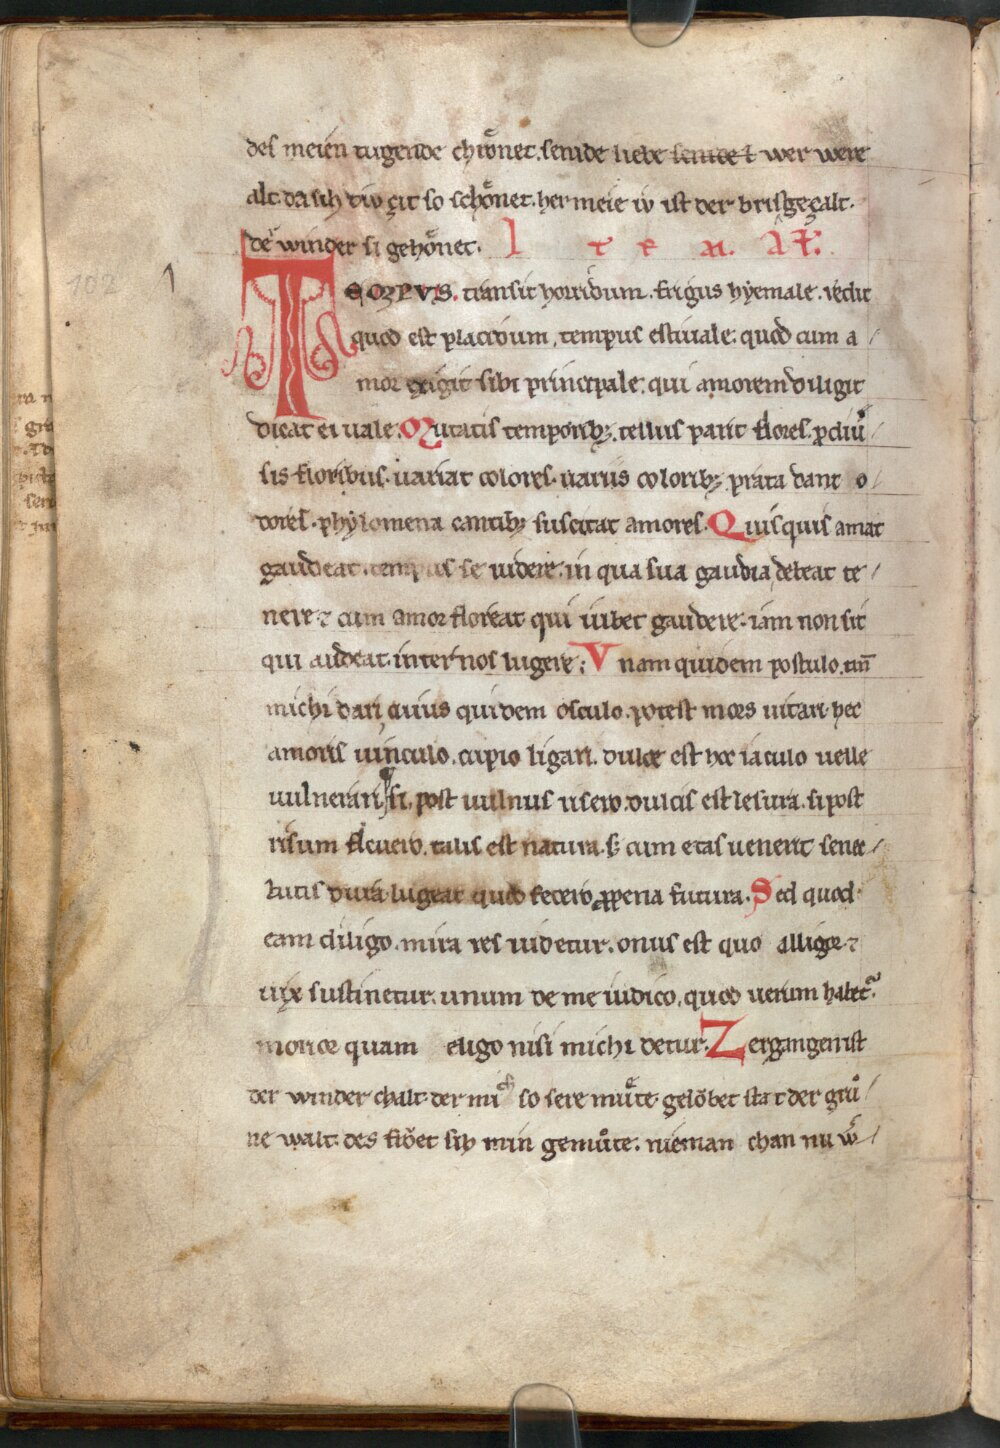 des meien tugende chrͦnet. senide liebe senide t wer were
alt. da sih div çit so schͦnet. her meie iv ist der bris geçalt.
der winder si gehͦnet. I t e m A ł.
102
TEMPVS. transit horridum. frigus hyemale. redit
quod est placidum, tempus estiuale. quod cum a /
mor exigit sibi principale. qui amorem diligit
dicat ei uale. Mutatis temporibꝫ. tellus parit flores. ꝓ diu͛ /
sis floribus. uariat colores. uariis coloribꝫ prata dant o /
dores. phylomena cantibꝫ suscitat amores. Quisquis amat
gaudeat. tempus se uidere. in qua sua gaudia, debeat te /
nere ⁊ cum amor floreat qui iubet gaudere. iam non sit
qui audeat. inter nos lugere; Vnam quidem postulo. tm̅
michi dari, cuius quidem osculo. potest mors uitari. hec
amoris uinculo. cupio ligari. dulce est hoc iaculo uelle
uulnerari si, post uulnus risero. dulcis est lesura. si post
risum fleuero. talis est natura. sꝫ cum etas uenerit senec /
tutis dura. lugeat quod fecero, ꝓ pena futura. Sed quod
eam diligo. mira res uidetur. onus est quo alligor ⁊
uix sustinetur. unum de me iudico. quod uerum habet᷑.
morior quam eligo nisi michi detur. Zergangen ist
der winder chalt. der mich so sere mͧte. gelͦbet stat der grͧ /
ne walt. des frͤet sih min gemͧte. nieman chan nu w͛ /